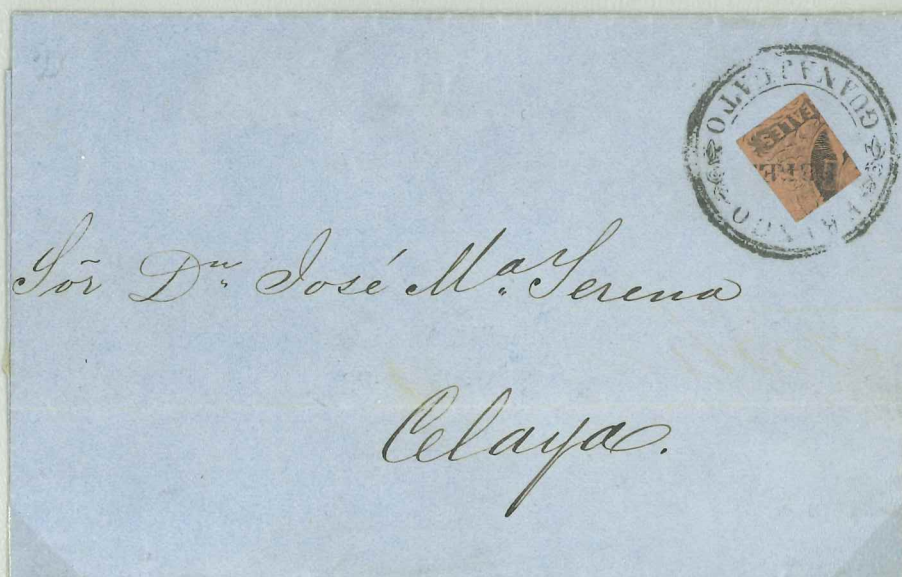 GUANAJUATO
FRANCO
Sōr Dn. José Ma. Serena
Celaya.